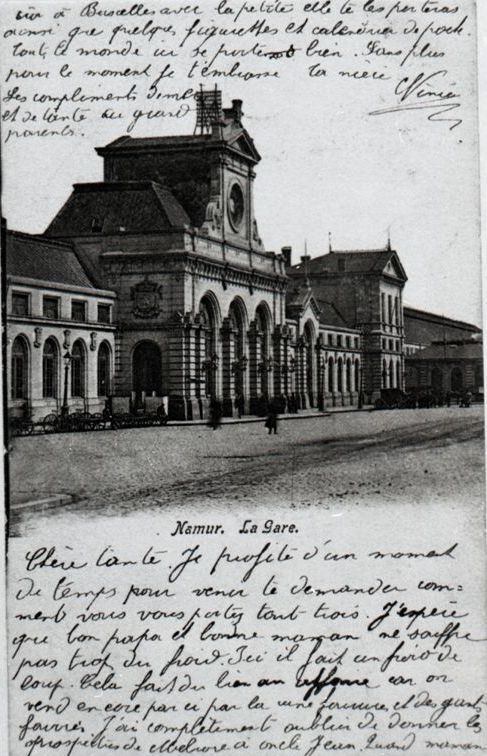 à Bruxelles avec la petite elle te les portera
ainsi que quelques figurettes et calendrier de poch.
Tout le monde ici se porte bien. Sans plus
pour le moment je t'embrasse ta nièce
Les compliments
et de tante au grand
parents.
Namur. La Gare.
Chère tante. Je profite d'un moment
de temps pour venir te demander com-
ment vous vous portez tout trois. J'espère
que bon papa et bonne maman ne souffre
pas trop du froid. Ici il fait un froid de
loup. Cela fait du bien au car on
vend encore par ci par la une fourrure et des gants
fourrés. J'ai complètement oublié de donner les
prospectus de à oncle Jean. Quand maman